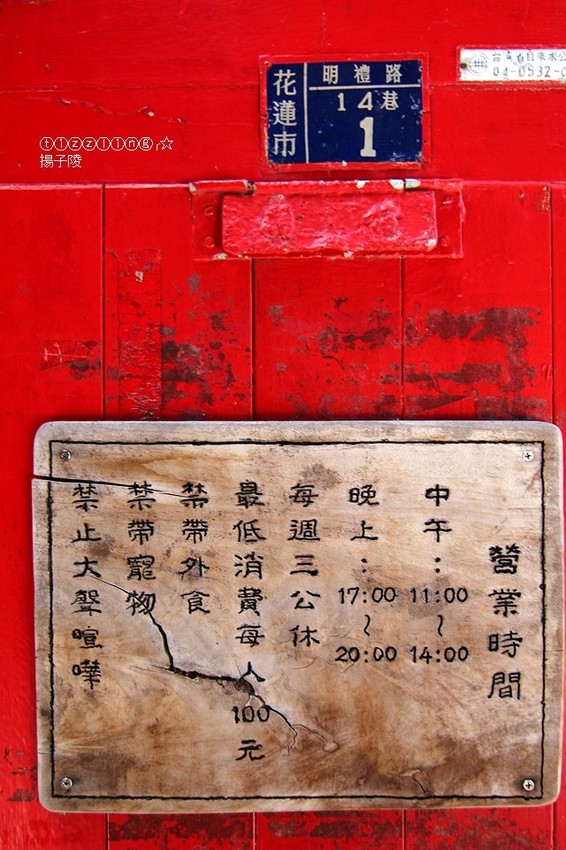 台灣省自來水公
04-0532-0
花蓮市
明禮路
14巷
1
tizzling,☆
揚子陵
營業時間
中午：11:00～14:00
晚上：17:00～20:00
每週三公休
最低消費每人100元
禁帶外食
禁帶寵物
禁止大聲喧嘩